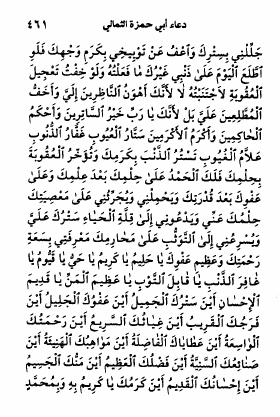 دعاء أبي حمزة الثمالي ٤٦١
جَلِّلْنِي بِسِتْرِكَ وَاعْفُ عَنْ تَوْبِيخِي بِكَرَمِ وَجْهِكَ فَلَوِ
اطَّلَعَ الْيَوْمَ عَلَىٰ ذَنْبِي غَيْرُكَ مَا فَعَلْتُهُ وَلَوْ خِفْتُ تَعْجِيلَ
الْعُقُوبَةِ لَاجْتَنَبْتُهُ لَا لِأَنَّكَ أَهْوَنُ النَّاظِرِينَ إِلَيَّ وَأَخَفُّ
الْمُطَّلِعِينَ عَلَيَّ بَلْ لِأَنَّكَ يَا رَبِّ خَيْرُ السَّاتِرِينَ وَأَحْكَمُ
الْحَاكِمِينَ وَأَكْرَمُ الْأَكْرَمِينَ سَتَّارُ الْعُيُوبِ غَفَّارُ الذُّنُوبِ
عَلَّامُ الْغُيُوبِ تَسْتُرُ الذَّنْبَ بِكَرَمِكَ وَتُؤَخِّرُ الْعُقُوبَةَ
بِحِلْمِكَ فَلَكَ الْحَمْدُ عَلَىٰ حِلْمِكَ بَعْدَ عِلْمِكَ وَعَلَىٰ
عَفْوِكَ بَعْدَ قُدْرَتِكَ وَيَحْمِلُنِي وَيُجَرِّئُنِي عَلَىٰ مَعْصِيَتِكَ
حِلْمُكَ عَنِّي وَيَدْعُونِي إِلَىٰ قِلَّةِ الْحَيَاءِ سَتْرُكَ عَلَيَّ
وَيُسْرِعُنِي إِلَىٰ التَّوَثُّبِ عَلَىٰ مَحَارِمِكَ مَعْرِفَتِي بِسَعَةِ
رَحْمَتِكَ وَعَظِيمِ عَفْوِكَ يَا حَلِيمُ يَا كَرِيمُ يَا حَيُّ يَا قَيُّومُ يَا
غَافِرَ الذَّنْبِ يَا قَابِلَ التَّوْبِ يَا عَظِيمَ الْمَنِّ يَا قَدِيمَ
الْإِحْسَانِ أَيْنَ سَتْرُكَ الْجَمِيلُ أَيْنَ عَفْوُكَ الْجَلِيلُ أَيْنَ
فَرَجُكَ الْقَرِيبُ أَيْنَ غِيَاثُكَ السَّرِيعُ أَيْنَ رَحْمَتُكَ
الْوَاسِعَةُ أَيْنَ عَطَايَاكَ الْفَاضِلَةُ أَيْنَ مَوَاهِبُكَ الْهَنِيئَةُ أَيْنَ
صَنَائِعُكَ السَّنِيَّةُ أَيْنَ فَضْلُكَ الْعَظِيمُ أَيْنَ مَنُّكَ الْجَسِيمُ
أَيْنَ إِحْسَانُكَ الْقَدِيمُ أَيْنَ كَرَمُكَ يَا كَرِيمُ بِهِ وَبِمُحَمَّدٍ